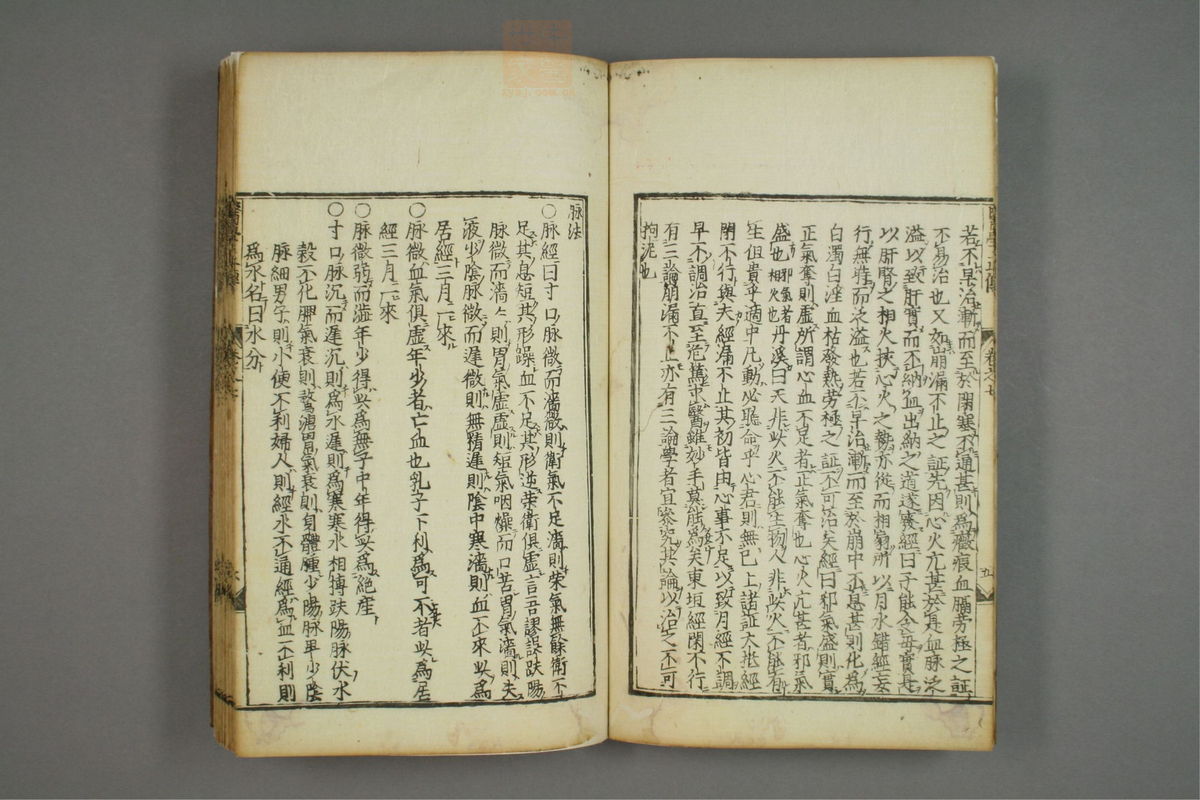 若不早治漸而至於閉塞不通甚則為癥瘕血膈勞極之証
不易治也又如崩漏不止之証先因心火亢甚於是血脉泛
溢以致肝實而不納血出納之道遂廢經曰子能令母實是
以肝腎之相火挾心火之勢亦從而相扇所以月水錯經妄
行無時而泛溢也若不早治漸而至於崩中不息甚則化為
白濁白淫血枯發熱勞極之証不可治矣經曰邪氣盛則實
正氣奪則虛所謂心血不足者正氣奪也心火亢甚者邪氣
盛也邪氣者相火也丹溪曰天非此火不能生物人非此火不能有
生但貴乎適中凡動必聽命乎心君則無已上諸証大抵經
閉不行與夫經漏不止其初皆由心事不足以致月經不調
早不調治直至危篤求醫雖妙手莫能為矣東垣經閉不行
有三論崩漏不止亦有三論學者宜參究其論以治之不可
拘泥也
五
脉法
○脉經曰寸口脉微而濇微則衛氣不足濇則榮氣無餘衛不
足其息短其形躁血不足其形逆榮衛俱虛言吾謬誤趺陽
脉微而濇濇則胃氣虛虛則短氣咽燥而口苦胃氣濇則失
液少陰脉微而遲微則無精遲則陰中寒濇則血不來此為
居經三月一來
○脉微血氣俱虛年少者亡血也乳子下利為可不者此為居
經三月一來
○脉微弱而濇年少得此為無子中年得此為絕產
○寸口脉沉而遲沉則為水遲則為寒寒水相搏趺陽脉伏水
穀不化脾氣衰則鶩溏胃氣衰則身體腫少陽脉卑少陰
脉細男子則小便不利婦人則經水不通經為血血不利則
為水名曰水分